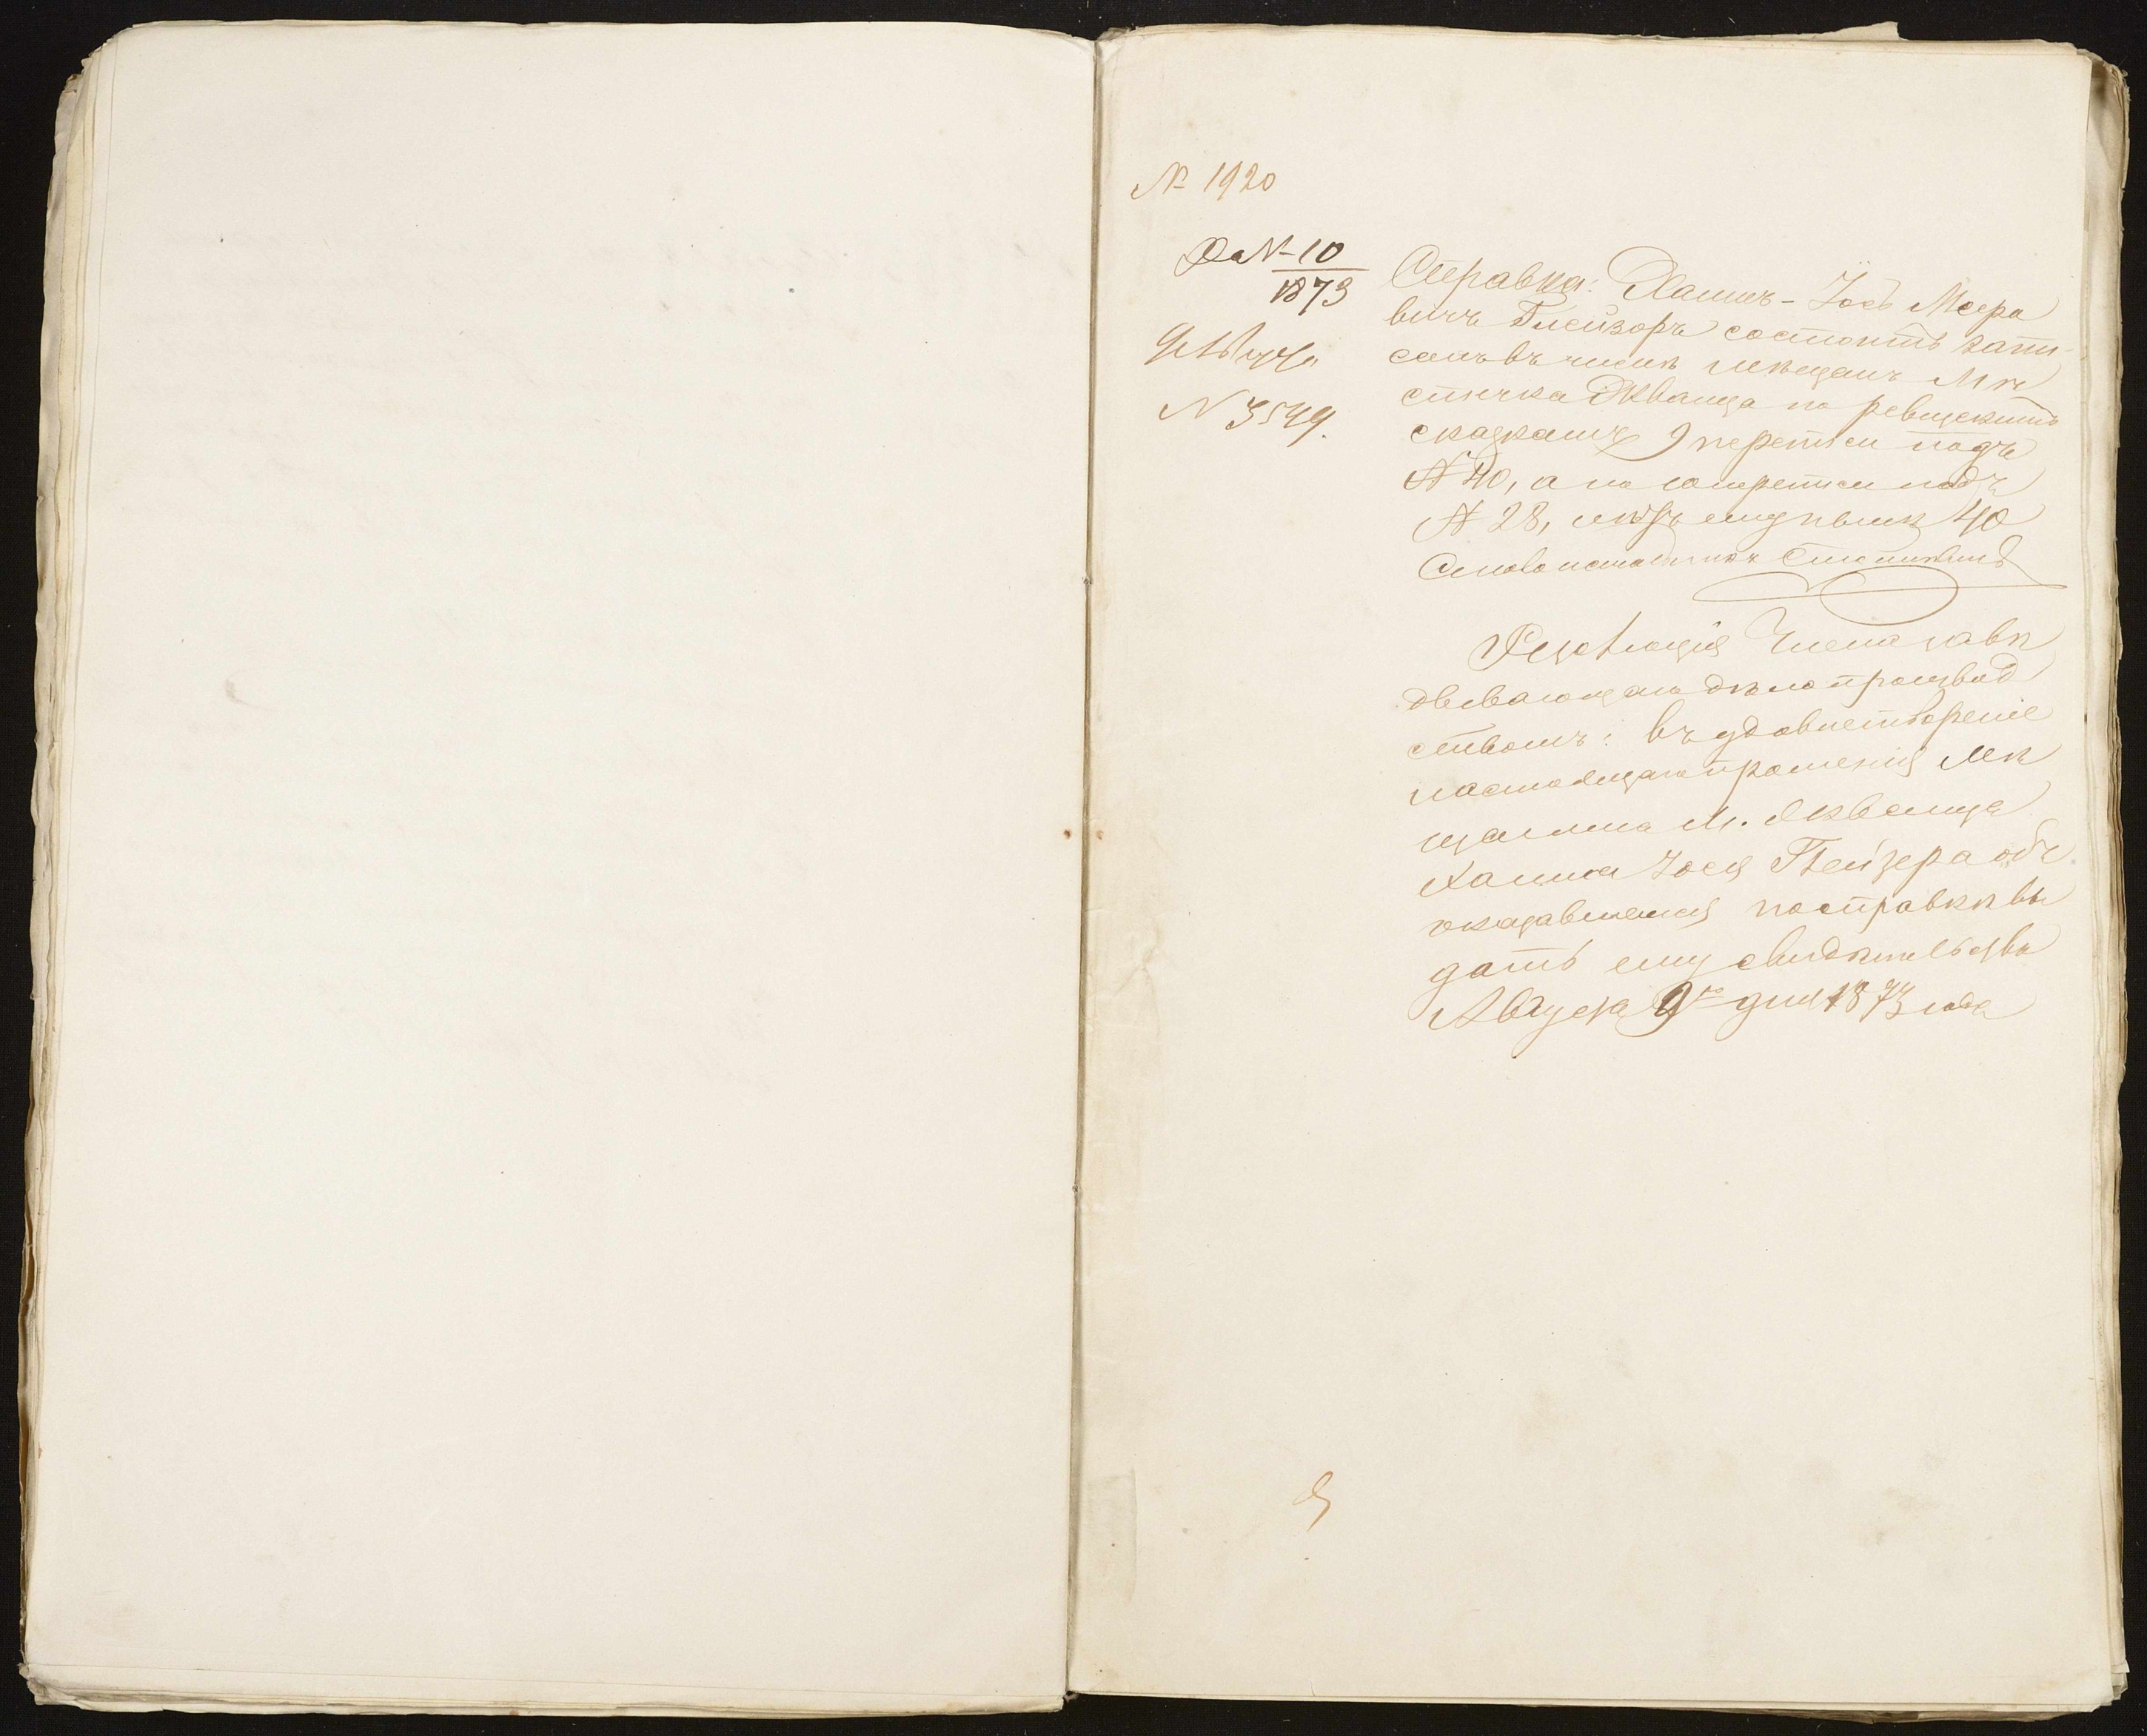 № 1920
Да № 10
1873
9 Августа
№ 3549.
Справка: Хаимъ-Іось Меера
вичъ Глейзоръ состоитъ запи-
санъ въ числѣ мѣщанъ Мѣ
стечка Жванца по ревизскимъ
сказкамъ 9 переписи подъ
№ 40, а по 10 переписи подъ
№ 28, лѣтъ ему нынѣ 40
Резолюція Члена завѣ
дывающаго дѣлопроизвод
ствомъ: въ удовлетвореніе
настоящаго прошенія мѣ
щанина м. Жванца
Хаима Іося Глейзера объ
оказавшемся по справкѣ вы
дать ему свидѣтельство
Августа 9го дня 1873 года